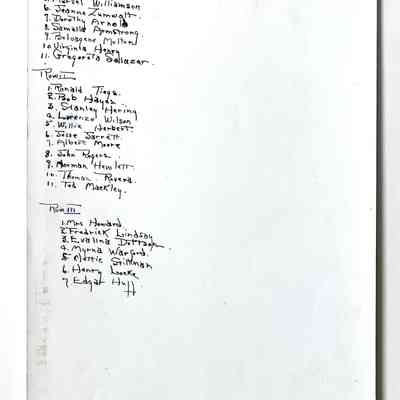 Williamson
6. Jeanne Zumwalt.
7. Dorothy Arnold
8. Samella Armstrong.
9. Melton
10. Virginia Henry
11. Gregoreta Salazar.
Row II
1. Ronald Tiegs.
2. Bob Hayes
3. Stanley Hering
4. Lorenzo Wilson
5. Willie Herbert.
6. Jesse Jarrett.
7. Albert Moore
8. John Rogers.
9. Herman Hewlett.
10. Thomas Rivera.
11. Ted Mackley.
Row III
1. Mrs Howard.
2. Fredrick Lindsay
3. Evalina
4. Myrna Warford.
5. Stillman
6. Henry Locke
7. Edgar Huff.